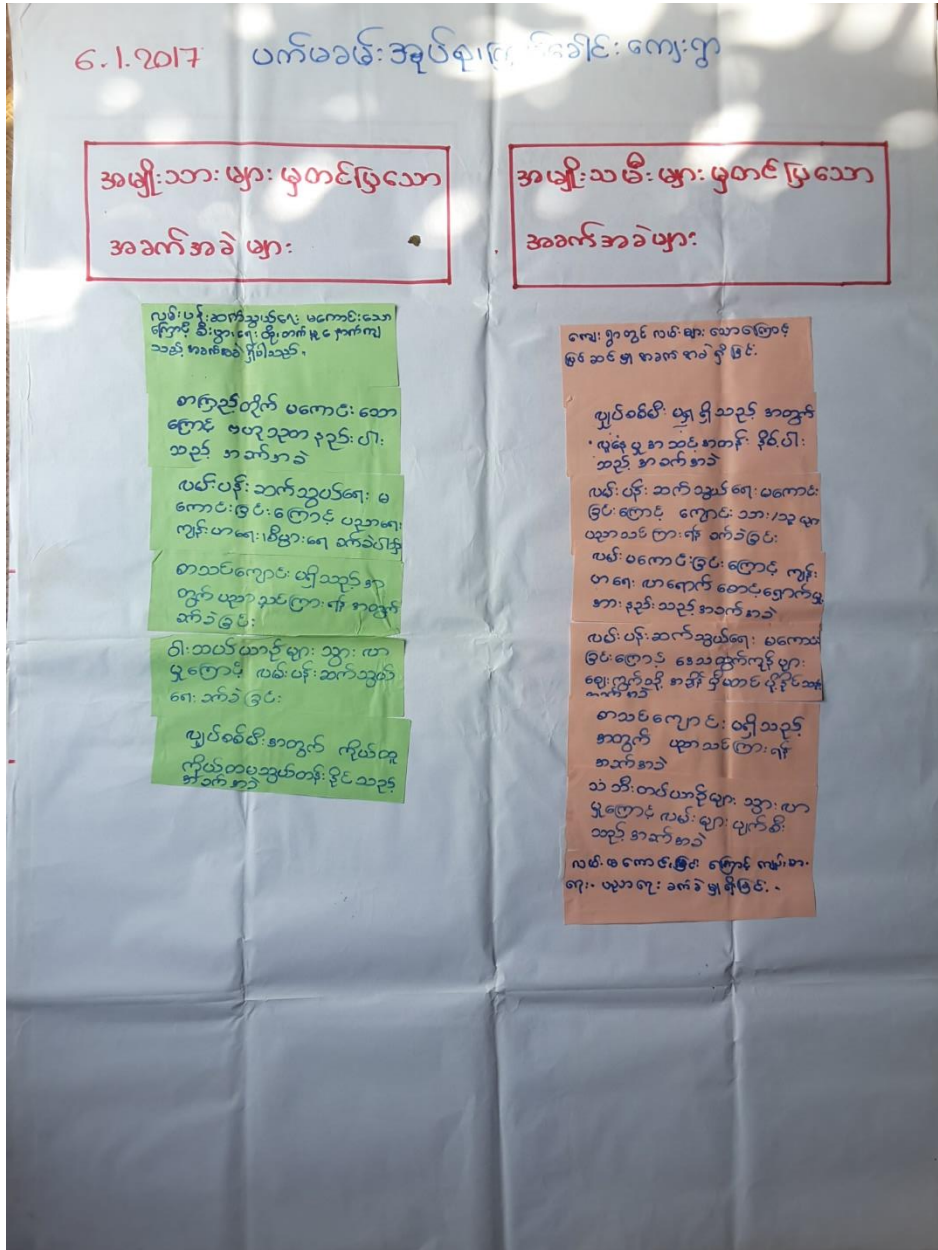 6.1.2017 ပက်မခမ်းအုပ်စု၊ ခေါင်းကျေးရွာ
အမျိုးသားများမှတင်ပြသော
အခက်အခဲများ
လမ်းပန်းဆက်သွယ်ရေး မကောင်းသော
ကြောင့် စီးပွားရေးတိုးတက်မှု နှောက်ကျ
သည့် အခက်အခဲ ရှိပါသည်။
စာကြည့်တိုက် မကောင်းသော
ကြောင့် ဗဟုသုတ နည်းပါး
သည့် အခက်အခဲ
လမ်းပန်းဆက်သွယ်ရေး မ
ကောင်းခြင်းကြောင့် ပညာရေး
ကျန်းမာရေး၊စီးပွားရေး ခက်ခဲပါ
စာသင်ကျောင်း မရှိသည့်အ
တွက် ပညာသင်ကြားရန် အတွက်
ခက်ခဲခြင်း
ဝါးသယ်ယာဉ်များ သွားလာ
မှုကြောင့် လမ်းပန်းဆက်သွယ်
ရေး ခက်ခဲခြင်း
လျှပ်စစ်မီးအတွက် ကိုယ်ထူ
ကိုယ်ထမသွယ်တန်းနိုင်သည့်
အခက်အခဲ
အမျိုးသမီးများမှတင်ပြသော
အခက်အခဲများ
ကျေးရွာတွင် လမ်းများ သောကြောင့်
ပြင်ဆင်မှု အခက်အခဲရှိခြင်း
လျှပ်စစ်မီး မရရှိသည့်အတွက်
လူနေမှုအဆင့်အတန်း နိမ့်ပါး
သည့် အခက်အခဲ
လမ်းပန်းဆက်သွယ်ရေး မကောင်း
ခြင်းကြောင့် ကျောင်းသား/သူများ
ပညာသင်ကြားရန် ခက်ခဲခြင်း
လမ်းမကောင်းခြင်းကြောင့် ကျန်း
မာရေး စောင့်ရှောက်မှု
အားနည်းသည့်အခက်အခဲ
လမ်းပန်းဆက်သွယ်ရေး မကောင်း
ခြင်းကြောင့် ဒေသထွက်ကုန်များ
ဈေးကွက်သို့ အချိန်မှီ
အခက်အခဲ
စာသင်ကျောင်း မရှိသည့်
အတွက် ပညာသင်ကြားရန်
အခက်အခဲ
သံဘီးတပ်ယာဉ်များ သွားလာ
မှုကြောင့် လမ်းများ ပျက်စီး
သည့်အခက်အခဲ
လမ်းမကောင်းခြင်း ကြောင့် ကျမ်းမာ
ရေး၊ ပညာရေး ခက်ခဲမှုရှိခြင်း။